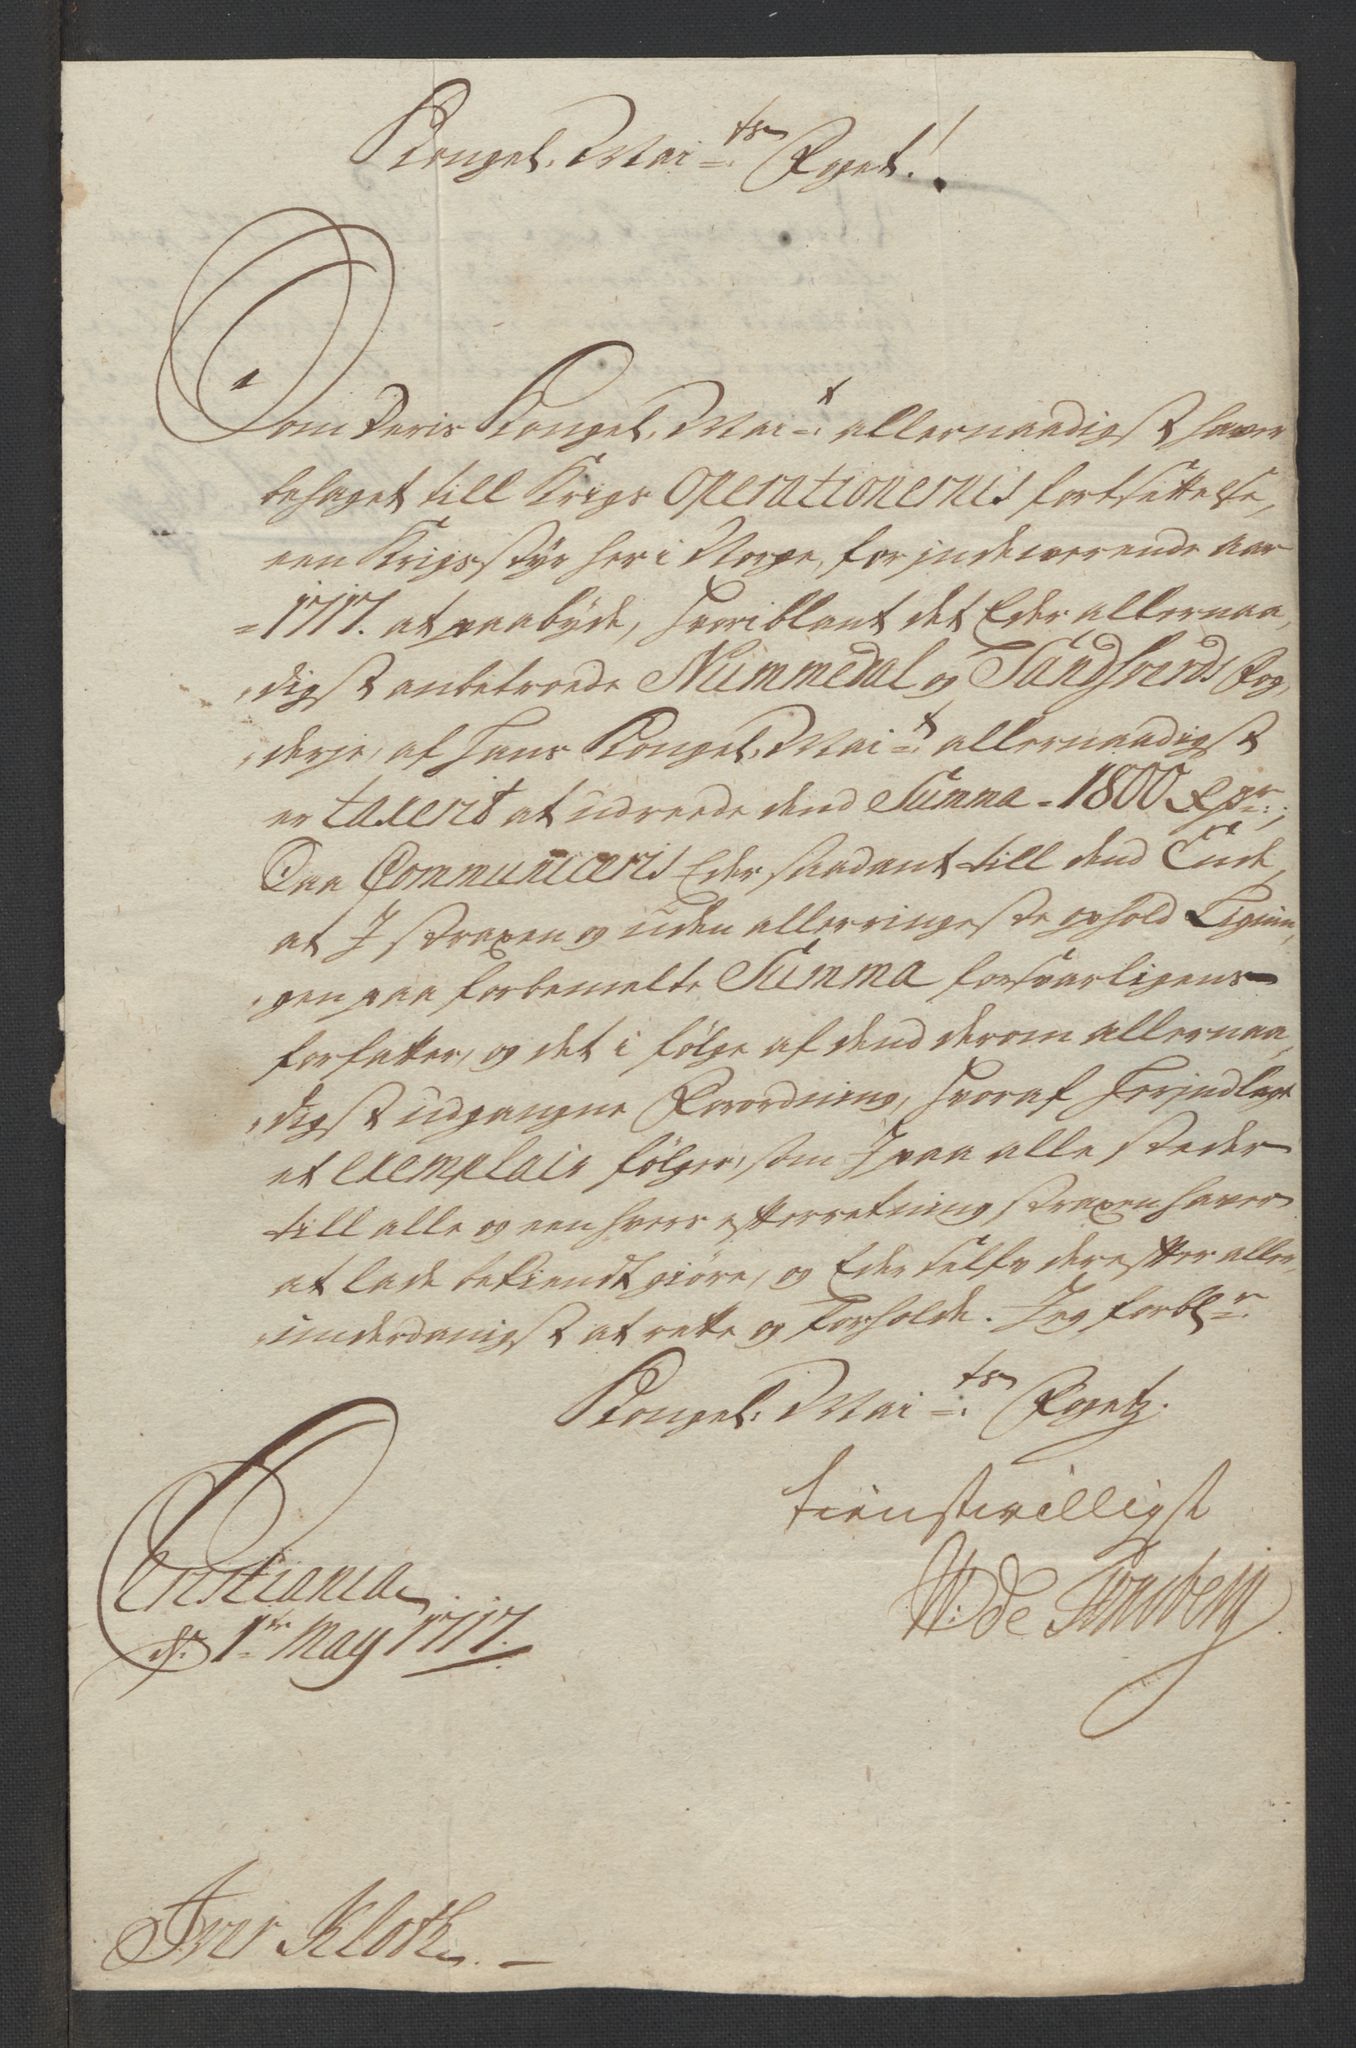 Kongel. Mai:ts Foget.!
Som Deris Kongel. Mai:t allernaadigst haver
behaget till Krigs Operationernis fortsettelse,
een Krigsstyr her i Norge, for indewerende aar
=1717. at paabyde, hvoriblant det Eder allernaa,
,digst anbetroede Nummedal og Sandsverds Fog,
,derje, af Hans Kongel. Mai:t allernaadigst
er taxerit at udreede dend Summa =1800 Rdr:,
Daa Communiceris Eder saadant till dend Ende,
at I straxen og uden allerringeste ophold Lignin,
,gen paa forbemelte Summa forsvarligens
forfatter, og det i følge af dend derom allernaa,
,digst udgangne Forordning, hvoraf herindlagt
et exemplair følger, som I paa alle steder
till alle og een hvers efterretning straxen haver
at lade bekiendtgiøre, og Eder selfv derefter aller,
,underdanigst at rette og forholde. Jeg forblr:
Kongel. Mai:ts Fogetz.
tienstvilligst
W: de Tonsberg
Cristiania
d: 1ste May 1717.
Iver Kloth. –